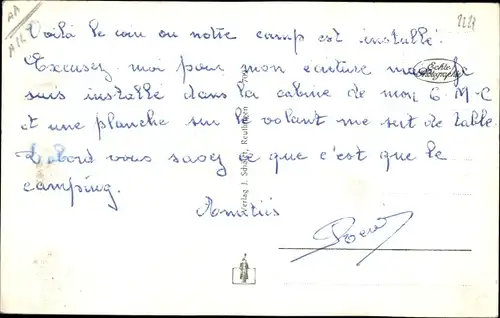 AA
ALL
2221
Voilà le coin ou notre camp est installé.
Excusez moi pour mon écriture mais je
suis installé dans la cabine de mon G.M.C
et une planche sur le volant me sert de table
D'abord vous savez ce que c'est que le
camping.
Amitiés
Echte Photographie
Verlag J. Schäfer, Reutlingen